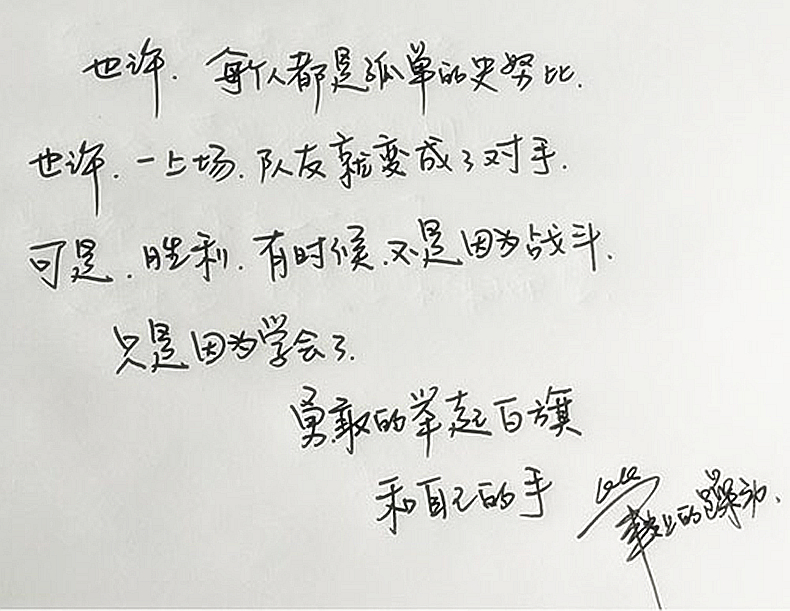 也许.每个人都是孤单的史努比.
也许.一上场.队友就变成了对手.
可是.胜利.有时候.不是因为战斗.
只是因为学会了.
勇敢的举起白旗
和自己的手
上的躁动.